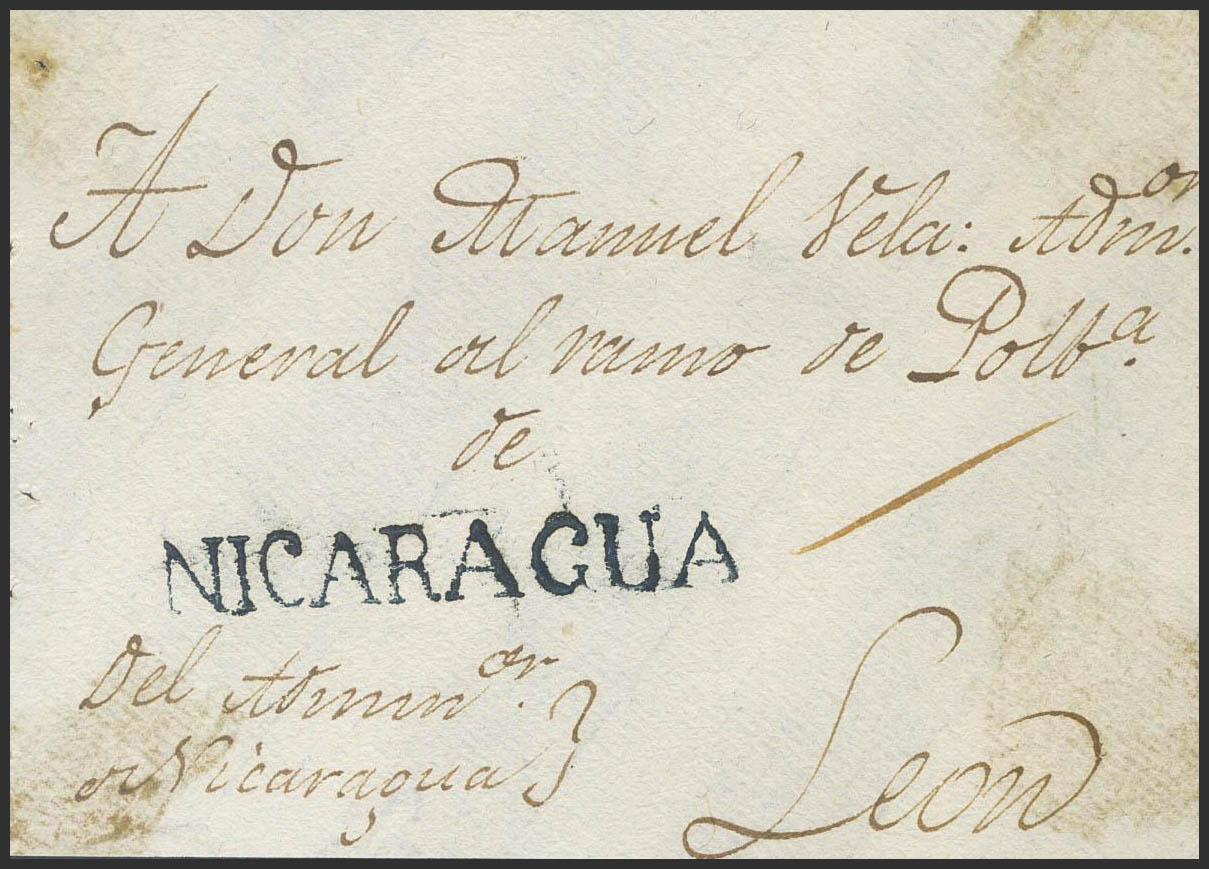 A Don Manuel Vela: Adm.or
General del ramo de Polb.a
de
NICARAGUA
Del Admin.or
de Nicaragua }
Leon